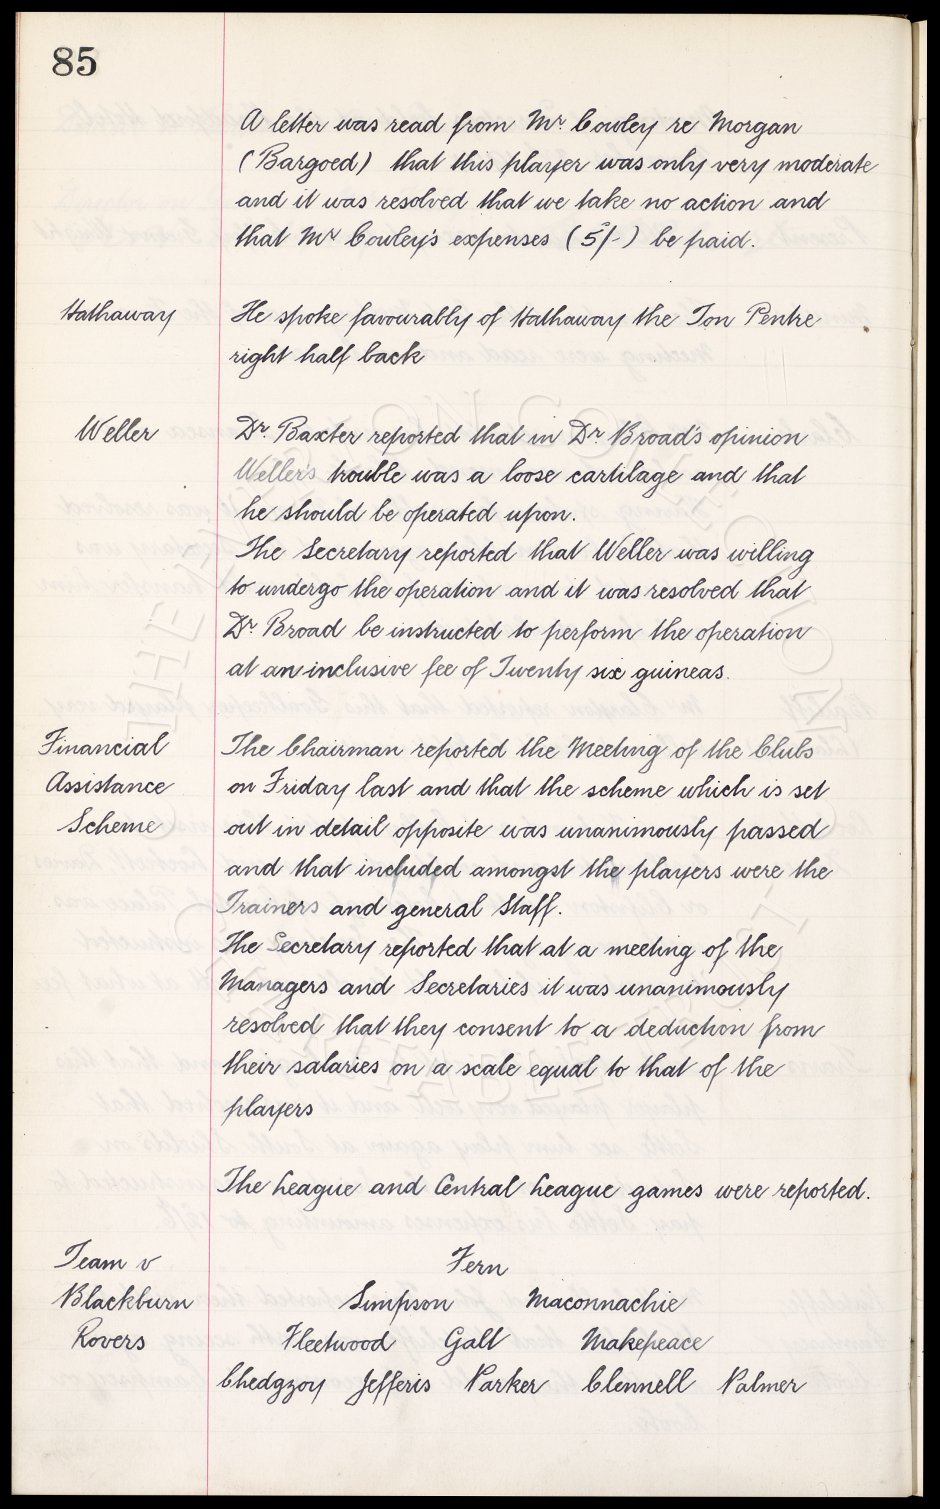 85
A letter was read from Mr Cowley re Morgan
(Bargoed) that this player was only very moderate
and it was resolved that we take no action and
that Mr Cowley's expenses (5/-) be paid.
Hathaway
He spoke favourably of Hathaway the Ton Pentre
right half back
Weller
Dr. Baxter reported that in Dr Broad's opinion
Weller's trouble was a loose cartilage and that
he should be operated upon.
The Secretary reported that Weller was willing
to undergo the operation and it was resolved that
Dr Broad be instructed to perform the operation
at an inclusive fee of Twenty six guineas.
Financial
Assistance
Scheme
The Chairman reported the Meeting of the Clubs
on Friday last and that the scheme which is set
out in detail opposite was unanimously passed
and that included amongst the players were the
Trainers and general Staff.
The Secretary reported that at a meeting of the
Managers and Secretaries it was unanimously
resolved that they consent to a deduction from
their salaries on a scale equal to that of the
players
The League and Central League games were reported.
Team v
Blackburn
Rovers
Fern
Simpson Maconnachie
Fleetwood Galt Makepeace
Chedgzoy Jefferis Parker Clennell Palmer